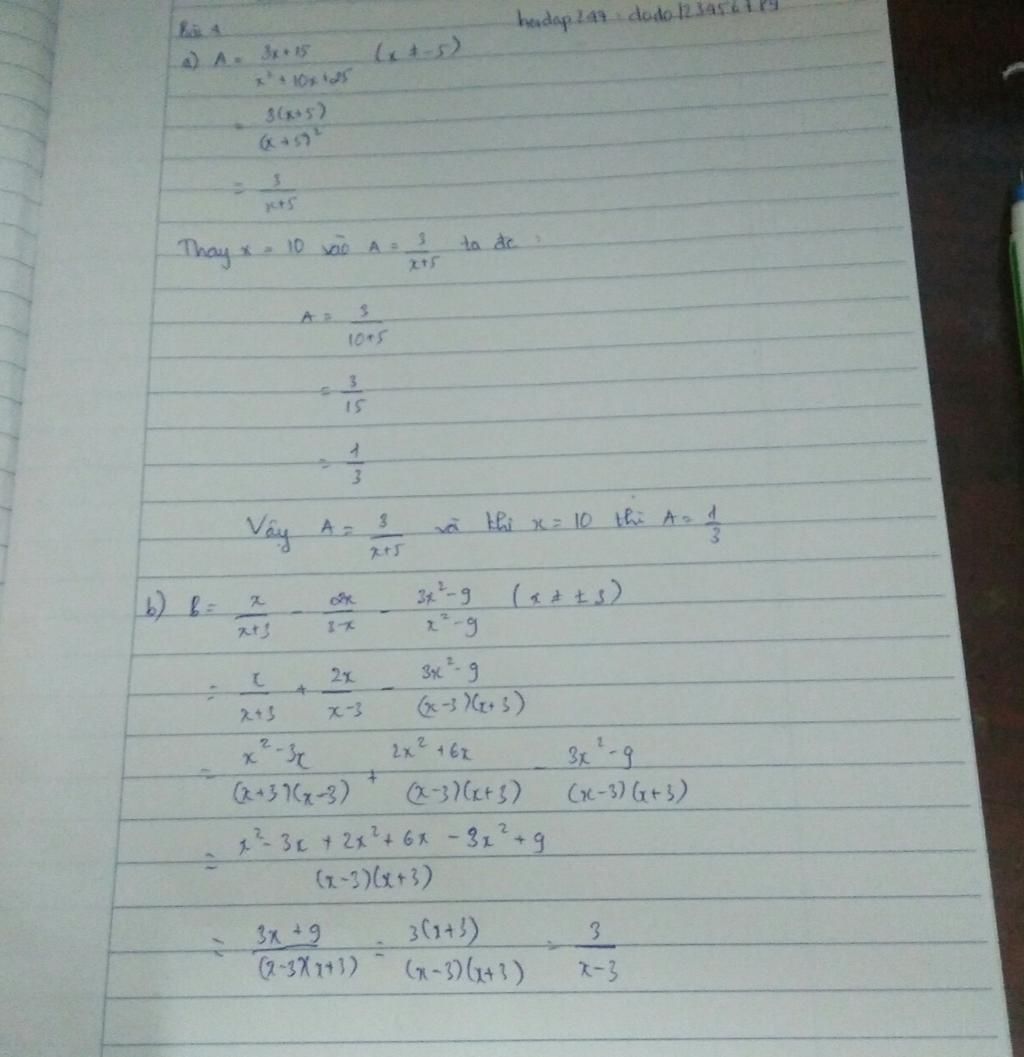 hoidap247: dodo123456789
Bài 1
a) A = (3x+15)/(x² + 10x+25) (x ≠ -5)
= 3(x+5)/(x+5)²
= 3/(x+5)
Thay x = 10 vào A = 3/(x+5) ta đc :
A = 3/(10+5)
= 3/15
= 1/3
Vậy A = 3/(x+5) và khi x = 10 thì A = 1/3
b) B = x/(x+3) - 2x/(3-x) - (3x²-9)/(x²-9) (x ≠ ± 3)
= x/(x+3) + 2x/(x-3) - (3x²-9)/((x-3)(x+3))
= (x²-3x)/((x+3)(x-3)) + (2x²+6x)/((x-3)(x+3)) - (3x²-9)/((x-3)(x+3))
= (x²-3x + 2x²+6x - 3x²+9)/((x-3)(x+3))
= (3x+9)/((x-3)(x+3)) = 3(x+3)/((x-3)(x+3)) = 3/(x-3)